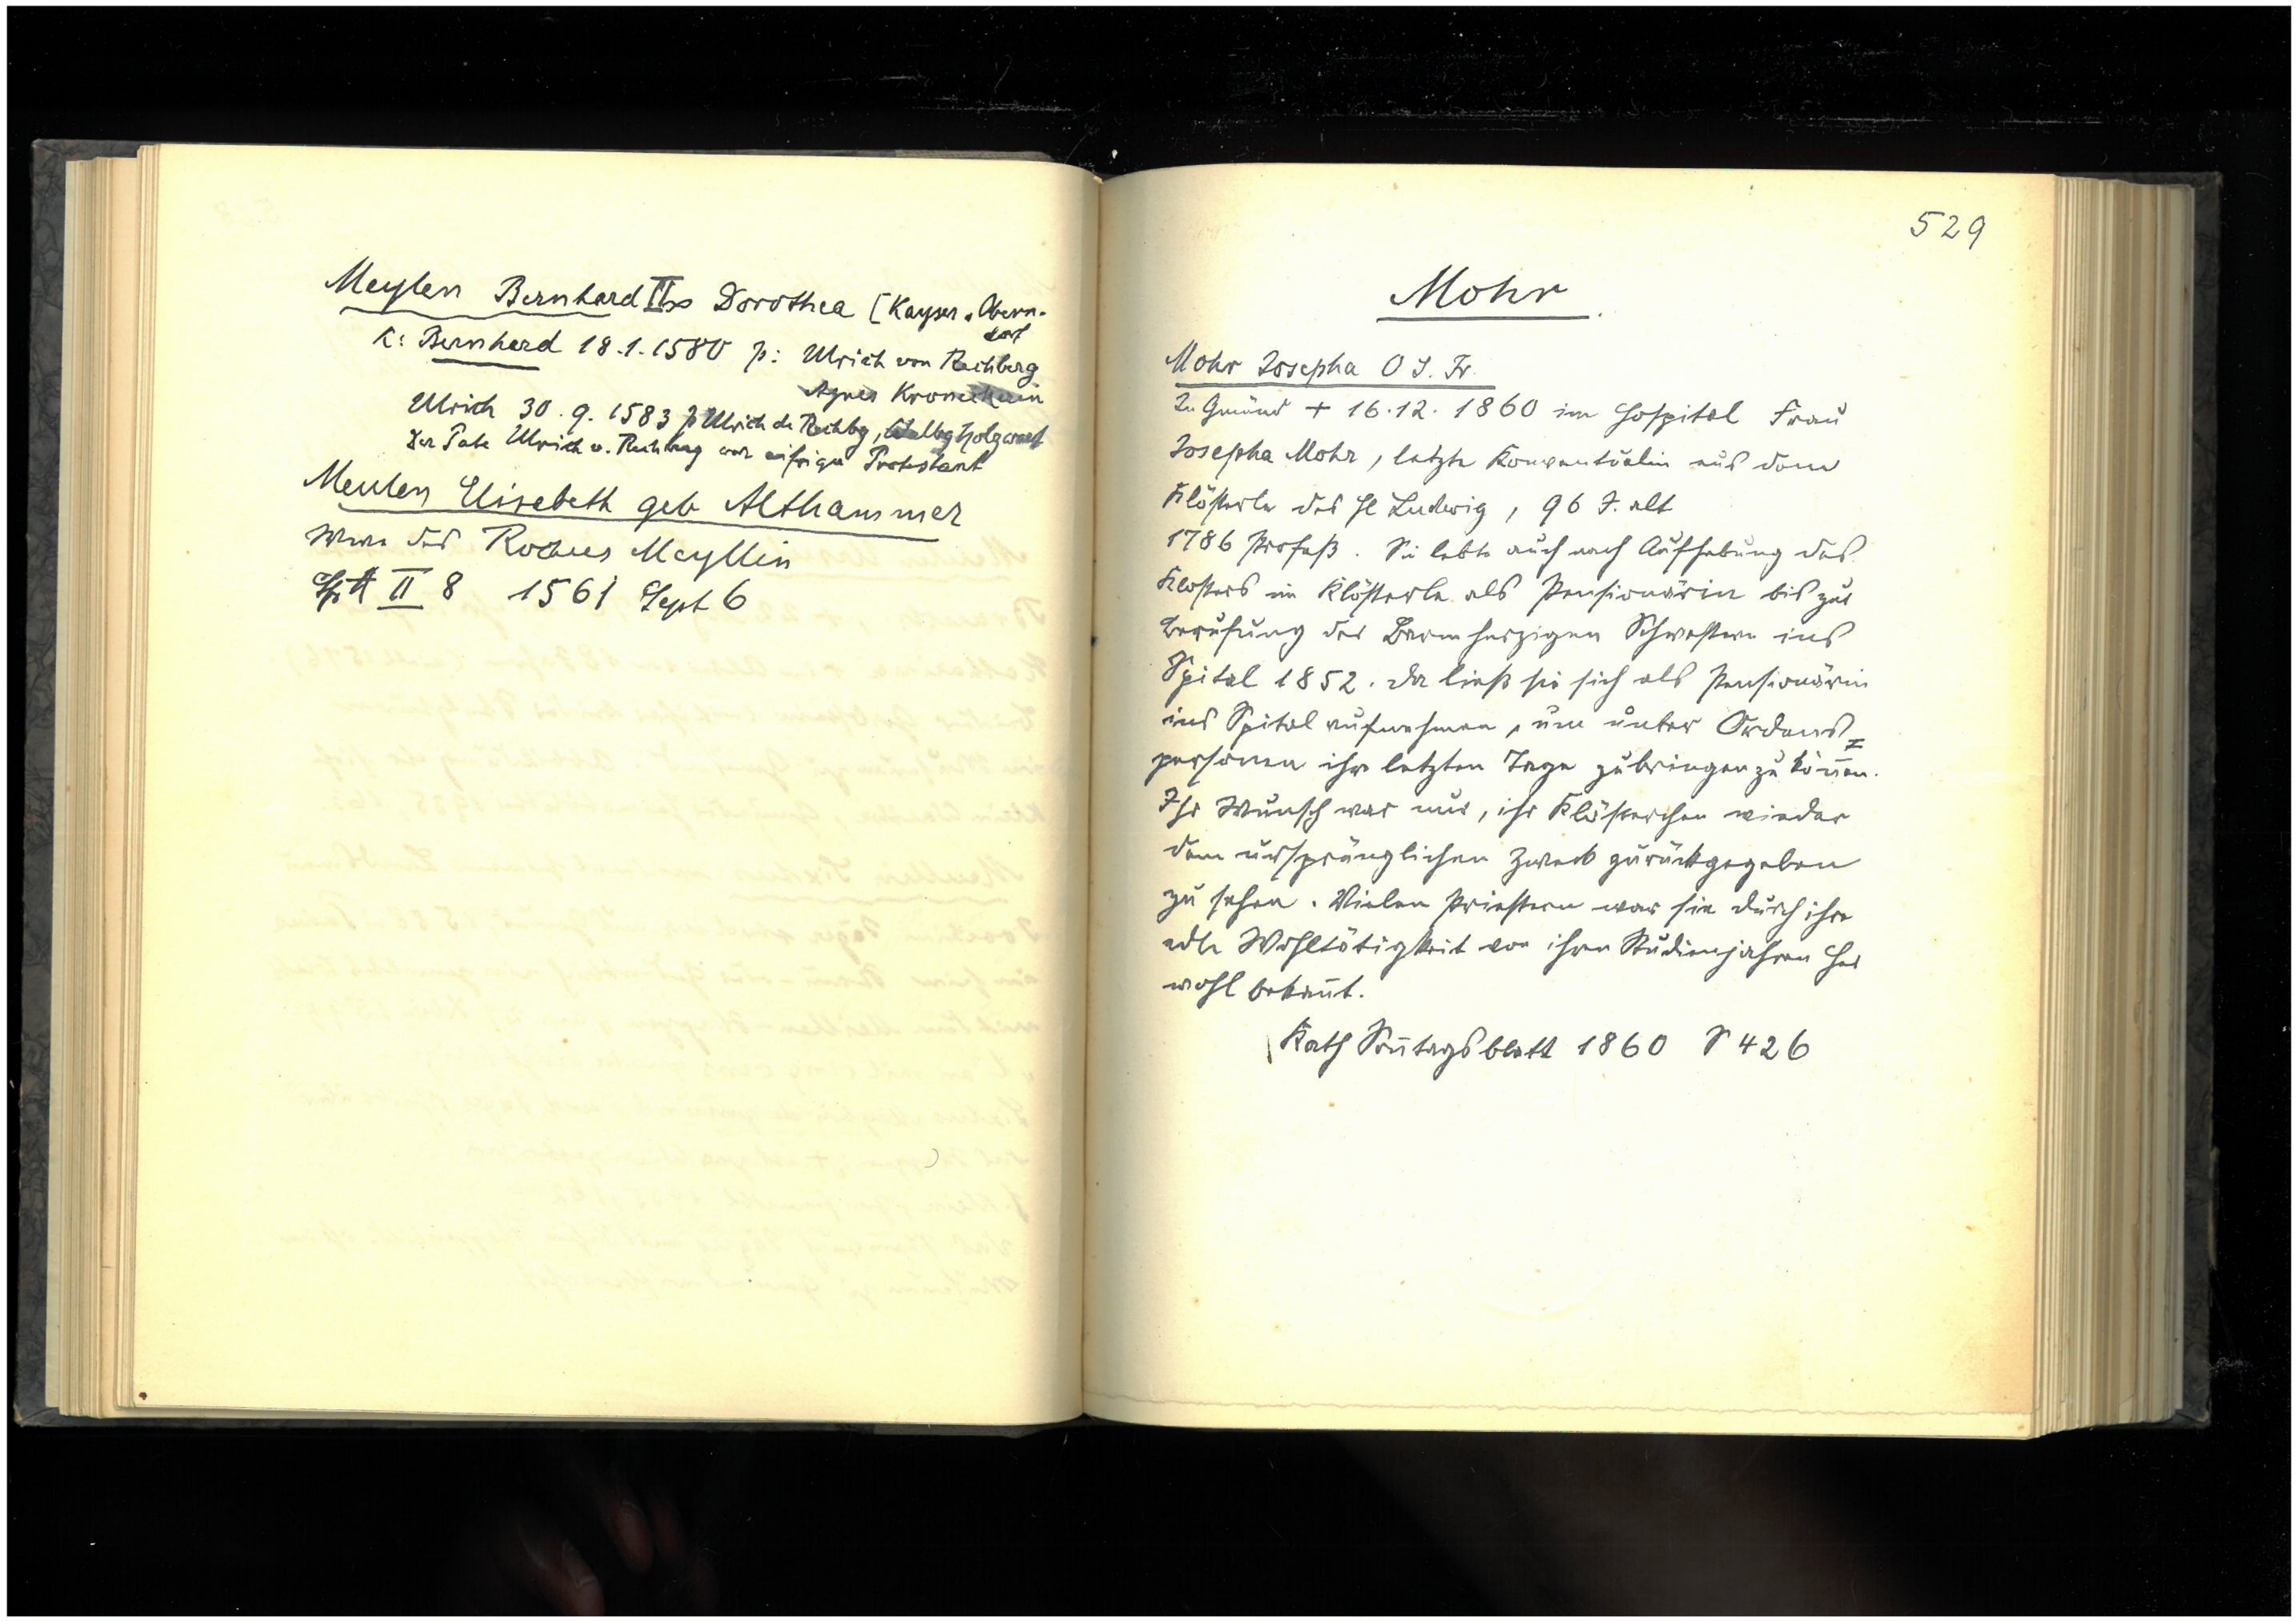 Meylen Bernhard II ∞ Dorothea [Kayser v. Obern-
dorf
K: Bernhard 18.1.1580 p: Ulrich von Rechberg
Agnes
Ulrich 30.9.1583 p Ulrich de Rechbg, Holzwart
Der Pate Ulrich v. Rechberg war eifriger Protestant
Meulen Elisabeth geb Althammer
Wwe des Rochus Meyllin
II 8 1561 Sept 6
529
Mohr
Mohr Josepha O S. Fr.
In Gmünd + 16.12. 1860 im Hospital Frau
Josepha Mohr, letzte Konventualin aus dem
Klösterle des Hl Ludwig, 96 J. alt
1786 Profeß. Sie lebte auch nach Aufhebung des
Klosters im Klösterle als Pensionärin bis zur
Berufung der Barmherzigen Schwestern ins
Spital 1852. Da ließ sie sich als Pensionärin
ins Spital aufnehmen, um unter Ordens=
personen ihre letzten Tage zubringen zu kön̄en.
Ihr Wunsch war nur, ihr Klösterchen wieder
dem ursprünglichen Zweck zurückgegeben
zu sehen. Vielen Priestern war sie durch ihre
edle Wohltätigkeit von ihren Studienjahren her
wohl bekan̄t.
Kath Son̄tagsblatt 1860 S 426